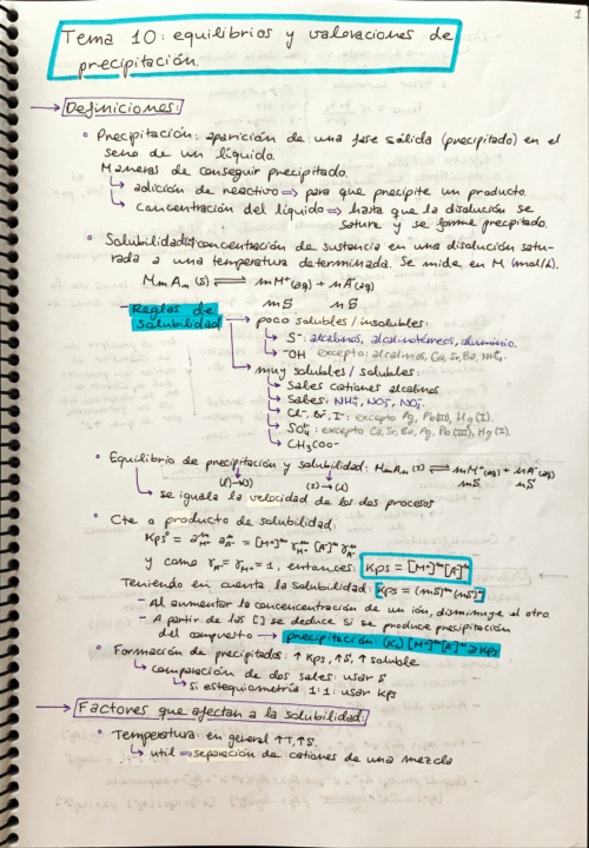 1
Tema 10: equilibrios y valoraciones de
precipitación.
→ Definiciones:
• Precipitación: aparición de una fase sólida (precipitado) en el
seno de un líquido.
Maneras de conseguir precipitado.
↳ adición de reactivo ⇒ para que precipite un producto.
↳ concentración del líquido ⇒ hasta que la disolución se
sature y se forme precipitado.
• Solubilidad: concentración de sustancia en una disolución satu-
rada a una temperatura determinada. Se mide en M (mol/L).
MmAn (s) ⇌ mM⁺(aq) + nA⁻(aq)
mS nS
- Reglas de
solubilidad
→ poco solubles/insolubles:
↳ S⁻: alcalinos, alcalinotérreos, aluminio.
↳ ⁻OH excepto: alcalinos, Ca, Sr, Ba, NH₄⁺
→ muy solubles/solubles:
↳ Sales cationes alcalinos
↳ Sales: NH₄⁺, NO₃⁻, NO₂⁻
↳ Cl⁻, Br⁻, I⁻: excepto Ag, Pb(II), Hg(I).
↳ SO₄⁼: excepto Ca, Sr, Ba, Ag, Pb(II), Hg(I).
↳ CH₃COO⁻
• Equilibrio de precipitación y solubilidad: MmAn (s) ⇌ mM⁺(aq) + nA⁻(aq)
(l)→(s) (s)→(l) mS nS
↳ se iguala la velocidad de los dos procesos
• Cte o producto de solubilidad:
Kps° = aᵐM⁺ aⁿA⁻ = [M⁺]ᵐ γᵐM⁺ [A⁻]ⁿ γⁿA⁻
y como γA⁻ = γM⁺ = 1, entonces: Kps = [M⁺]ᵐ[A⁻]ⁿ
Teniendo en cuenta la solubilidad: Kps = (mS)ᵐ(nS)ⁿ
- Al aumentar la concencentración de un ión, disminuye el otro
- A partir de las [] se deduce si se produce precipitación
del compuesto → precipitación: [M⁺]ᵐ[A⁻]ⁿ ≥ Kps
• Formación de precipitados: ↑ Kps, ↑S, ↑ soluble
↳ comparación de dos sales: usar S
↳ si estequiometría 1:1: usar Kps
→ Factores que afectan a la solubilidad:
• Temperatura: en general ↑T, ↑S.
↳ util ⇒ separación de cationes de una mezcla